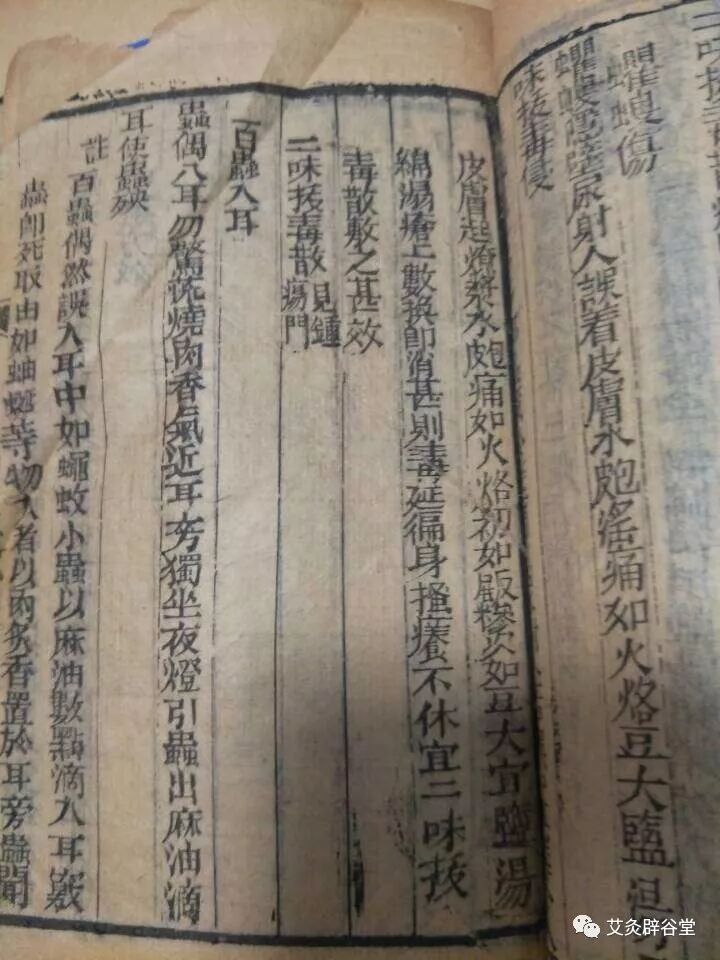 二味拔毒
蠼螋傷
蠼螋隱壁尿射人誤着皮膚水皰瘥痛如火烙豆大鹽湯
味拔毒侵
皮膚起燎漿水皰痛如火烙初如飯糝次如豆大宜鹽湯
綿溻瘡上數換即消甚則毒延徧身搔癢不休宜二味拔
毒散敷之甚效
二味拔毒散見腫瘍門
百蟲入耳
蟲偶入耳勿驚慌燒肉香氣近耳旁獨坐夜燈引蟲出麻油滴
耳使蟲殃
註百蟲偶然誤入耳中如蠅蚊小蟲以麻油數點滴入耳竅
蟲即死取由如蚰蜒等物入者以肉炙香置於耳旁蟲聞
艾灸辟谷堂